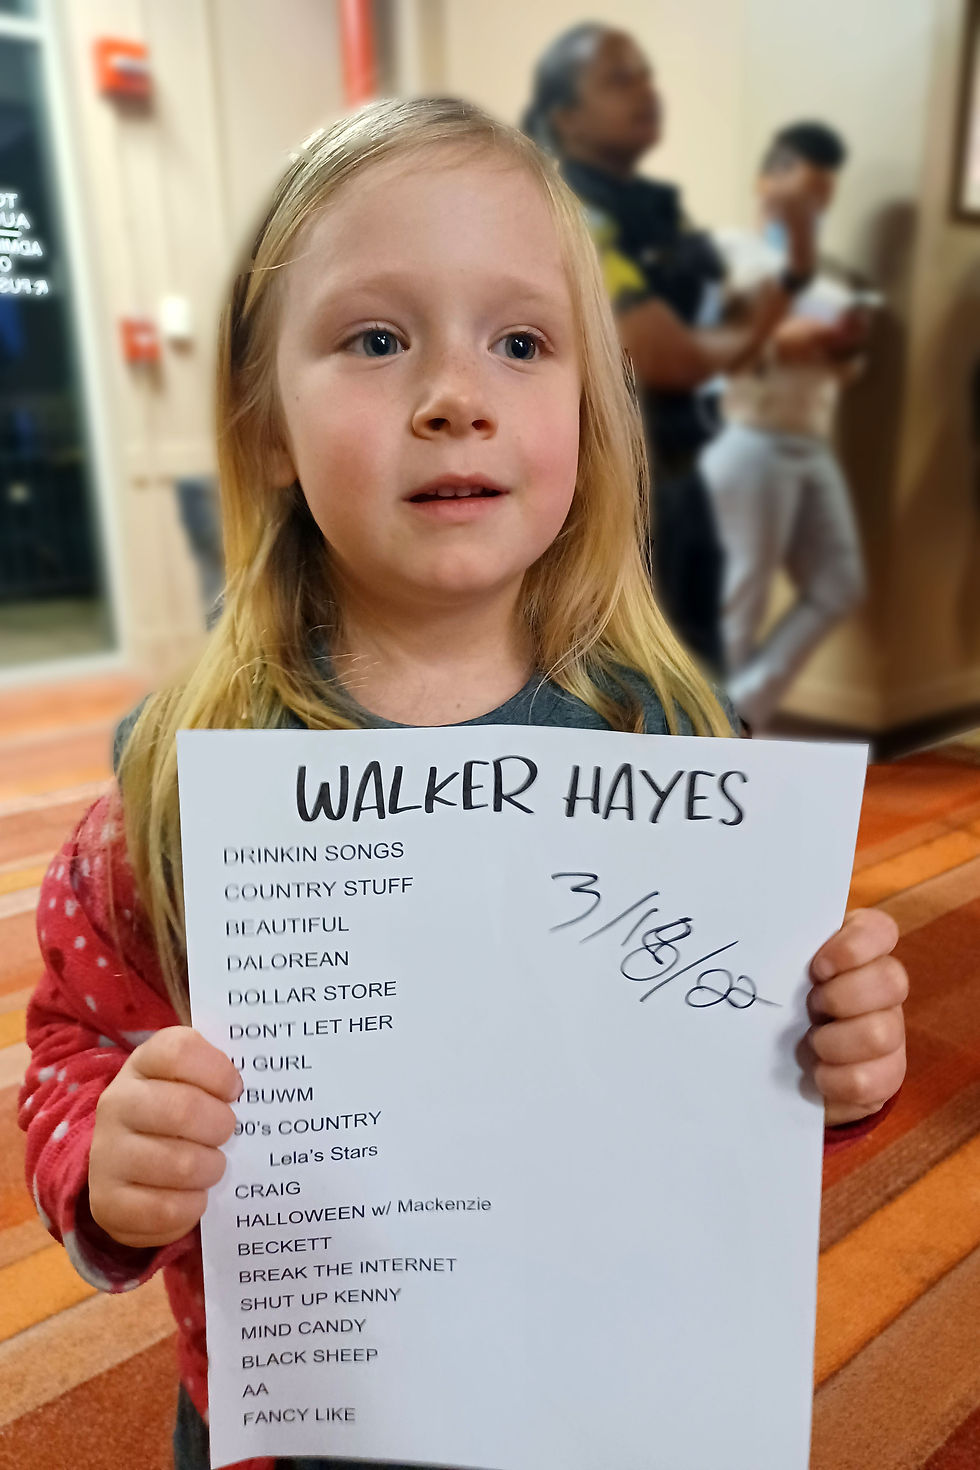 WALKER HAYES
DRINKIN SONGS
3/18/22
COUNTRY STUFF
BEAUTIFUL
DALOREAN
DOLLAR STORE
DON'T LET HER
U GURL
YBUWM
90's COUNTRY
Lela's Stars
CRAIG
HALLOWEEN w/ Mackenzie
BECKETT
BREAK THE INTERNET
SHUT UP KENNY
MIND CANDY
BLACK SHEEP
AA
FANCY LIKE